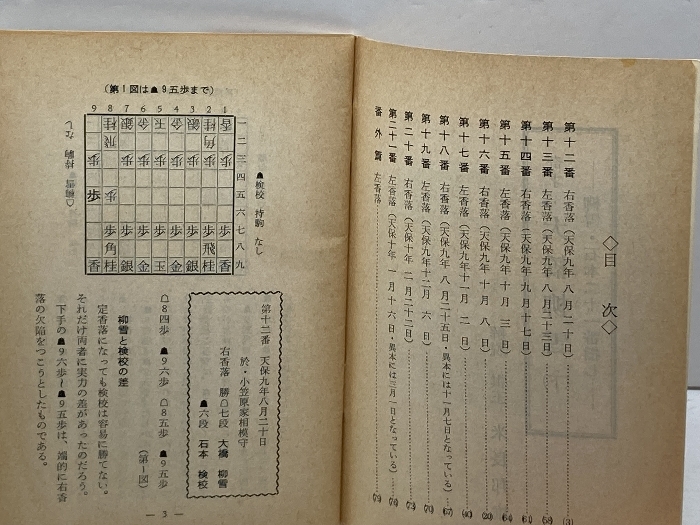 ◇目 次◇
第十二番 右香落(天保九年 八月二十日)
第十三番 左香落(天保九年 八月二十三日)
第十四番 右香落(天保九年 九月十七日)
第十五番 左香落(天保九年 十月 三日)
第十六番 右香落(天保九年 十月 八日)
第十七番 左香落(天保九年 十一月 二日)
第十八番 右香落(天保九年 八月二十五日・異本には十一月七日となっている)
第十九番 左香落(天保九年十二月 六日)
第二十番 右香落(天保十年 二月二十二日)
第二十一番 左香落(天保十年 一月十六日・異本には三月一日となっている)
番外篇 左香落
(第1図は☗9五歩まで)
9 8 7 6 5 4 3 2 1
一二三四五六七八九
☗検校 持駒 なし
☖柳雪 持駒 なし
第十二番 天保九年八月二十日
於・小笠原家相模守
右香落 勝☖七段 大橋 柳雪
☗六段 石本 検校
☖8四歩 ☗9六歩 ☖8五歩 ☗9五歩
(第1図)
柳雪と検校の差
定香落になっても検校は容易に勝てない。
それだけ両者に実力の差があったのだろう。
下手の☗9六歩~☗9五歩は、端的に右香
落の欠陥をつこうとしたものである。
— 3 —